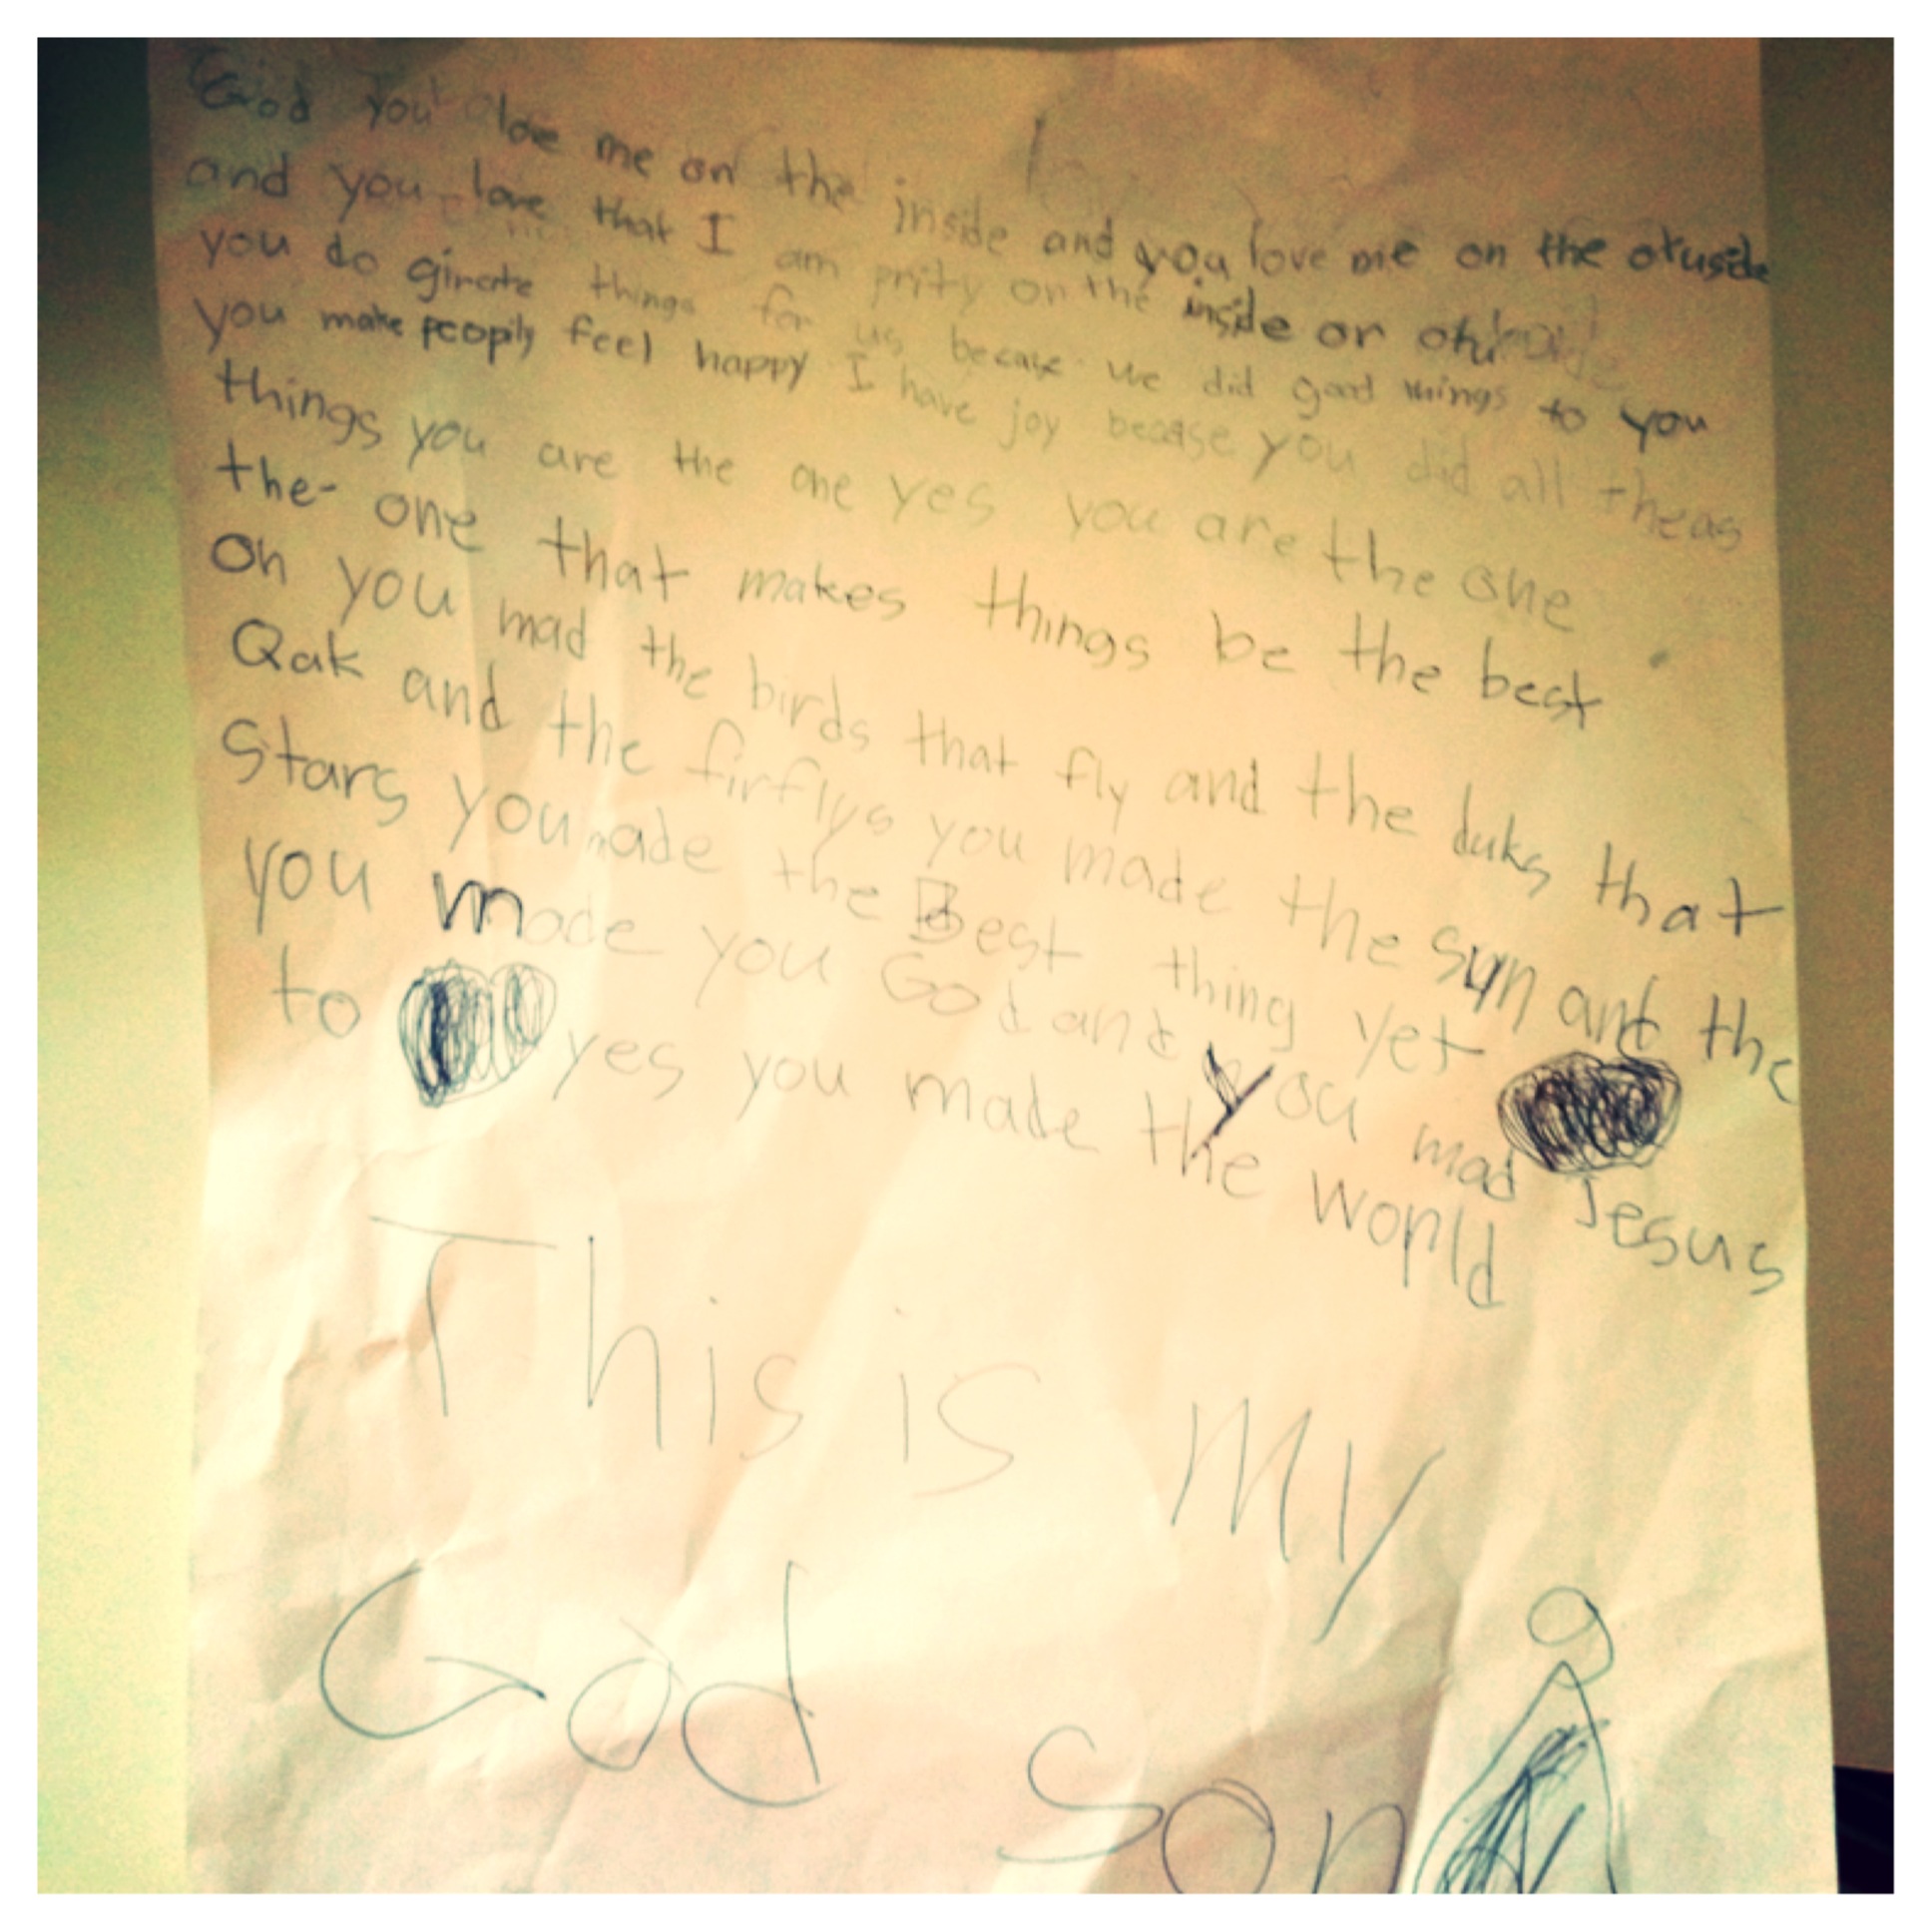 God you love me on the inside and you love me on the otuside
and you love that I am prity on the inside or
you do girate things for us becase we did good things to you
you make peoply feel happy I have joy becase you did all theas
things you are the one yes you are the one
the one that makes things be the best
Oh you mad the birds that fly and the duks that
Qak and the firflys you made the sun and the
Stars you made the Best thing yet
you made you God and you mad Jesus
to yes you made the world
This is my
God son